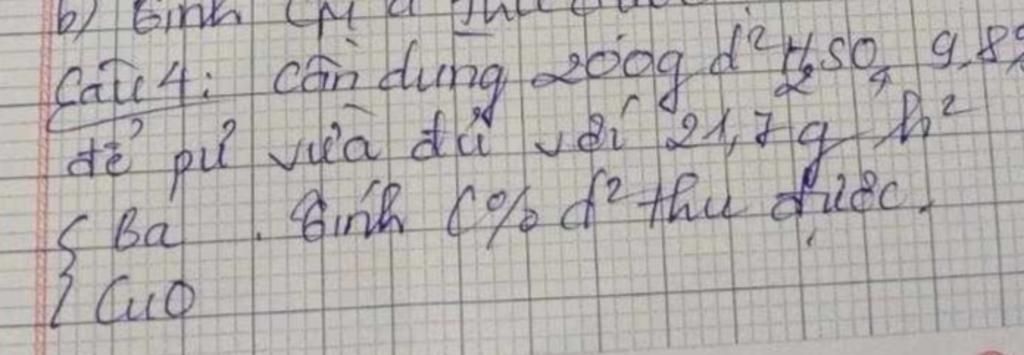 b) Tính CM d
Câu 4: Cần dùng 200g d² H₂SO₄ 9,8%
để pứ vừa đủ với 21,7g h²
{ Ba . Tính C% d² thu được.
{ CuO